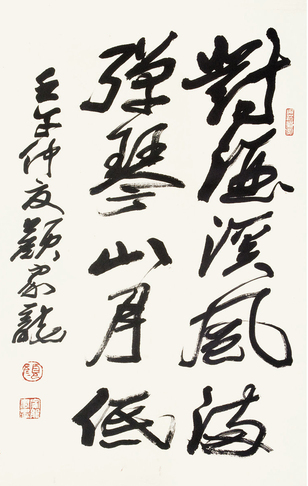 對酒溪風滿
弹琴山月低
壬午仲夏颜家龍